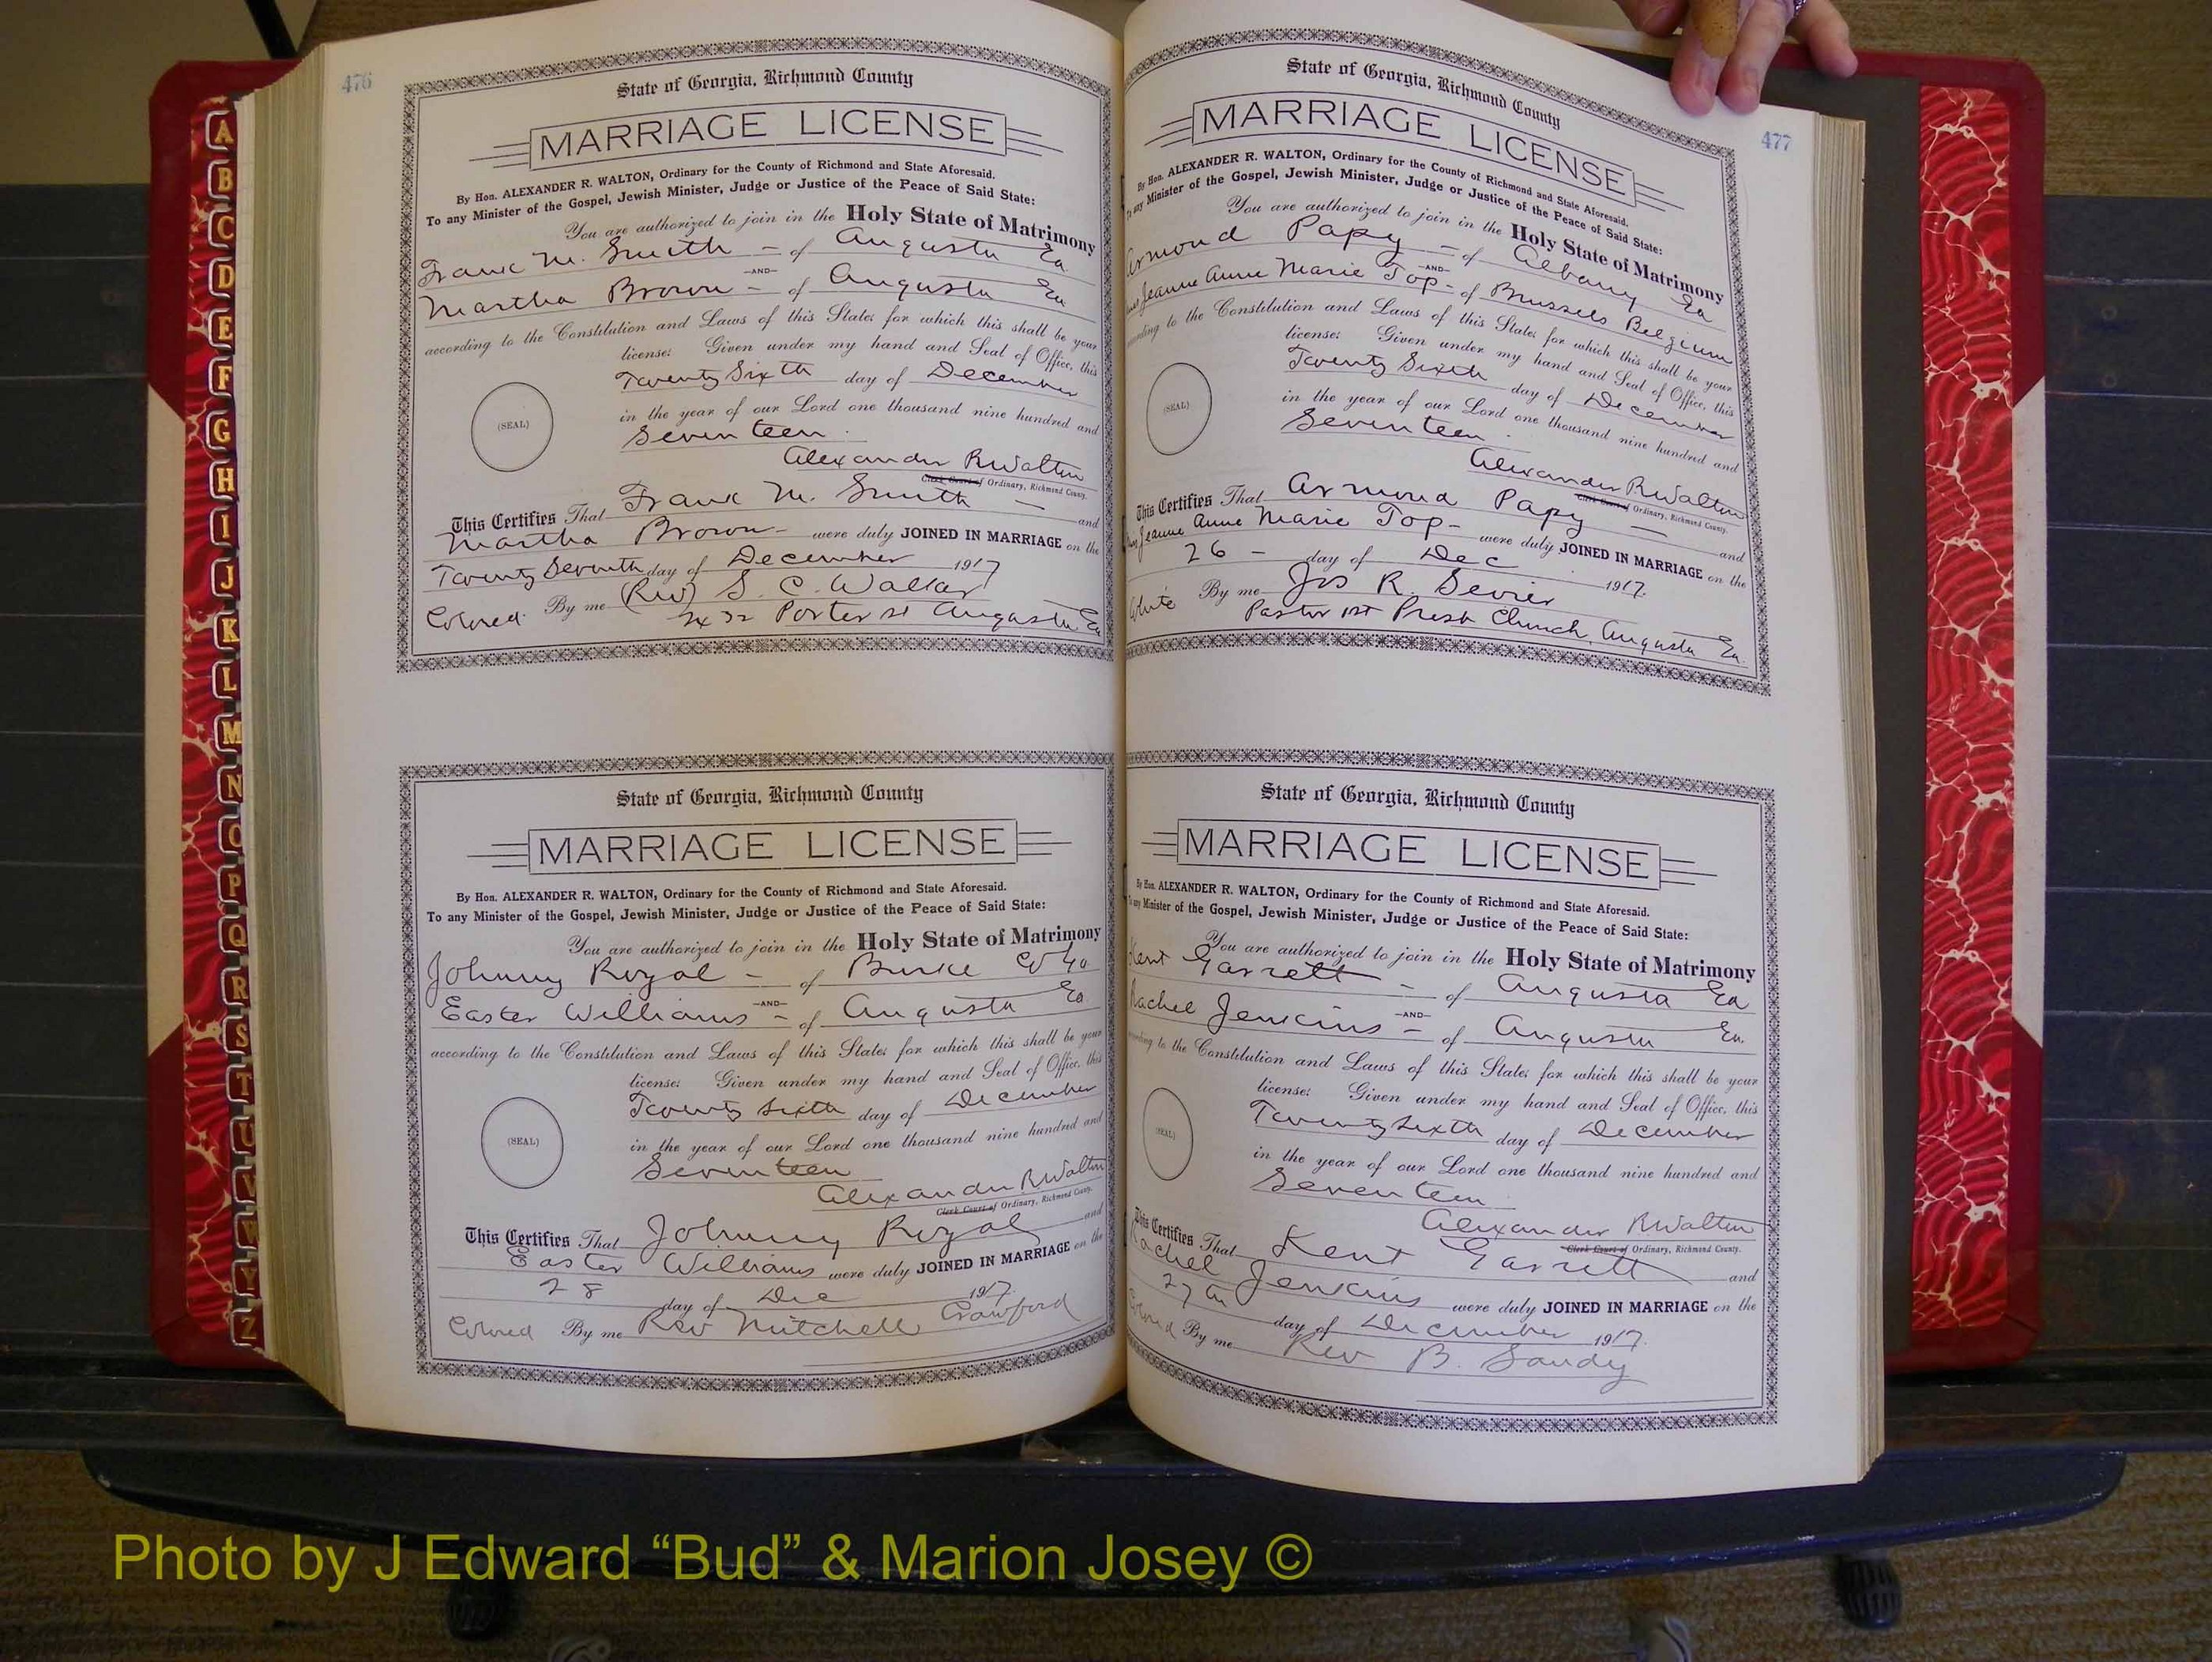 476
State of Georgia, Richmond County
MARRIAGE LICENSE
By Hon. ALEXANDER R. WALTON, Ordinary for the County of Richmond and State Aforesaid.
To any Minister of the Gospel, Jewish Minister, Judge or Justice of the Peace of Said State:
You are authorized to join in the Holy State of Matrimony
Frank M. Smith – of Augusta Ga
–AND–
Martha Brown – of Augusta Ga
according to the Constitution and Laws of this State; for which this shall be your
license: Given under my hand and Seal of Office, this
Twenty Sixth day of December
in the year of our Lord one thousand nine hundred and
(SEAL)
Seventeen.
Alexander R Walton
Clerk Court of Ordinary, Richmond County.
This Certifies That Frank M. Smith – and
Martha Brown – were duly JOINED IN MARRIAGE on the
Twenty Seventh day of December 1917
Colored. By me (Rev) S. C. Walker
Porter st Augusta Ga
State of Georgia, Richmond County
MARRIAGE LICENSE
By Hon. ALEXANDER R. WALTON, Ordinary for the County of Richmond and State Aforesaid.
To any Minister of the Gospel, Jewish Minister, Judge or Justice of the Peace of Said State:
You are authorized to join in the Holy State of Matrimony
Johnny Royal – of Burke Co Ga
–AND–
Easter Williams – of Augusta Ga
according to the Constitution and Laws of this State; for which this shall be your
license: Given under my hand and Seal of Office, this
Twenty Sixth day of December
in the year of our Lord one thousand nine hundred and
(SEAL)
Seventeen
Alexander R Walton
Clerk Court of Ordinary, Richmond County.
This Certifies That Johnny Royal and
Easter Williams were duly JOINED IN MARRIAGE on the
28 day of Dec 1917.
Colored By me Rev Mitchell Crawford
477
State of Georgia, Richmond County
MARRIAGE LICENSE
By Hon. ALEXANDER R. WALTON, Ordinary for the County of Richmond and State Aforesaid.
To any Minister of the Gospel, Jewish Minister, Judge or Justice of the Peace of Said State:
You are authorized to join in the Holy State of Matrimony
Armond Papy – of Albany Ga
–AND–
Jeanne Anne Marie Top – of Brussels Belgium
according to the Constitution and Laws of this State; for which this shall be your
license: Given under my hand and Seal of Office, this
Twenty Sixth day of December
in the year of our Lord one thousand nine hundred and
(SEAL)
Seventeen.
Alexander R Walton
Clerk Court of Ordinary, Richmond County.
This Certifies That Armond Papy – and
Jeanne Anne Marie Top – were duly JOINED IN MARRIAGE on the
26 – day of Dec 1917.
White By me Jos R. Sevier
Pastor 1st Presb Church Augusta Ga.
State of Georgia, Richmond County
MARRIAGE LICENSE
By Hon. ALEXANDER R. WALTON, Ordinary for the County of Richmond and State Aforesaid.
To any Minister of the Gospel, Jewish Minister, Judge or Justice of the Peace of Said State:
You are authorized to join in the Holy State of Matrimony
Kent Garrett – of Augusta Ga
–AND–
Rachel Jenkins – of Augusta Ga.
according to the Constitution and Laws of this State; for which this shall be your
license: Given under my hand and Seal of Office, this
Twenty Sixth day of December
in the year of our Lord one thousand nine hundred and
(SEAL)
Seventeen
Alexander R Walton
Clerk Court of Ordinary, Richmond County.
This Certifies That Kent Garrett and
Rachel Jenkins were duly JOINED IN MARRIAGE on the
27th day of December 1917.
Colored By me Rev B. Sandy
A
B
C
D
E
F
G
H
I
J
K
L
M
N
O
P
Q
R
S
T
U
V
W
Y
Z
Photo by J Edward “Bud” & Marion Josey ©